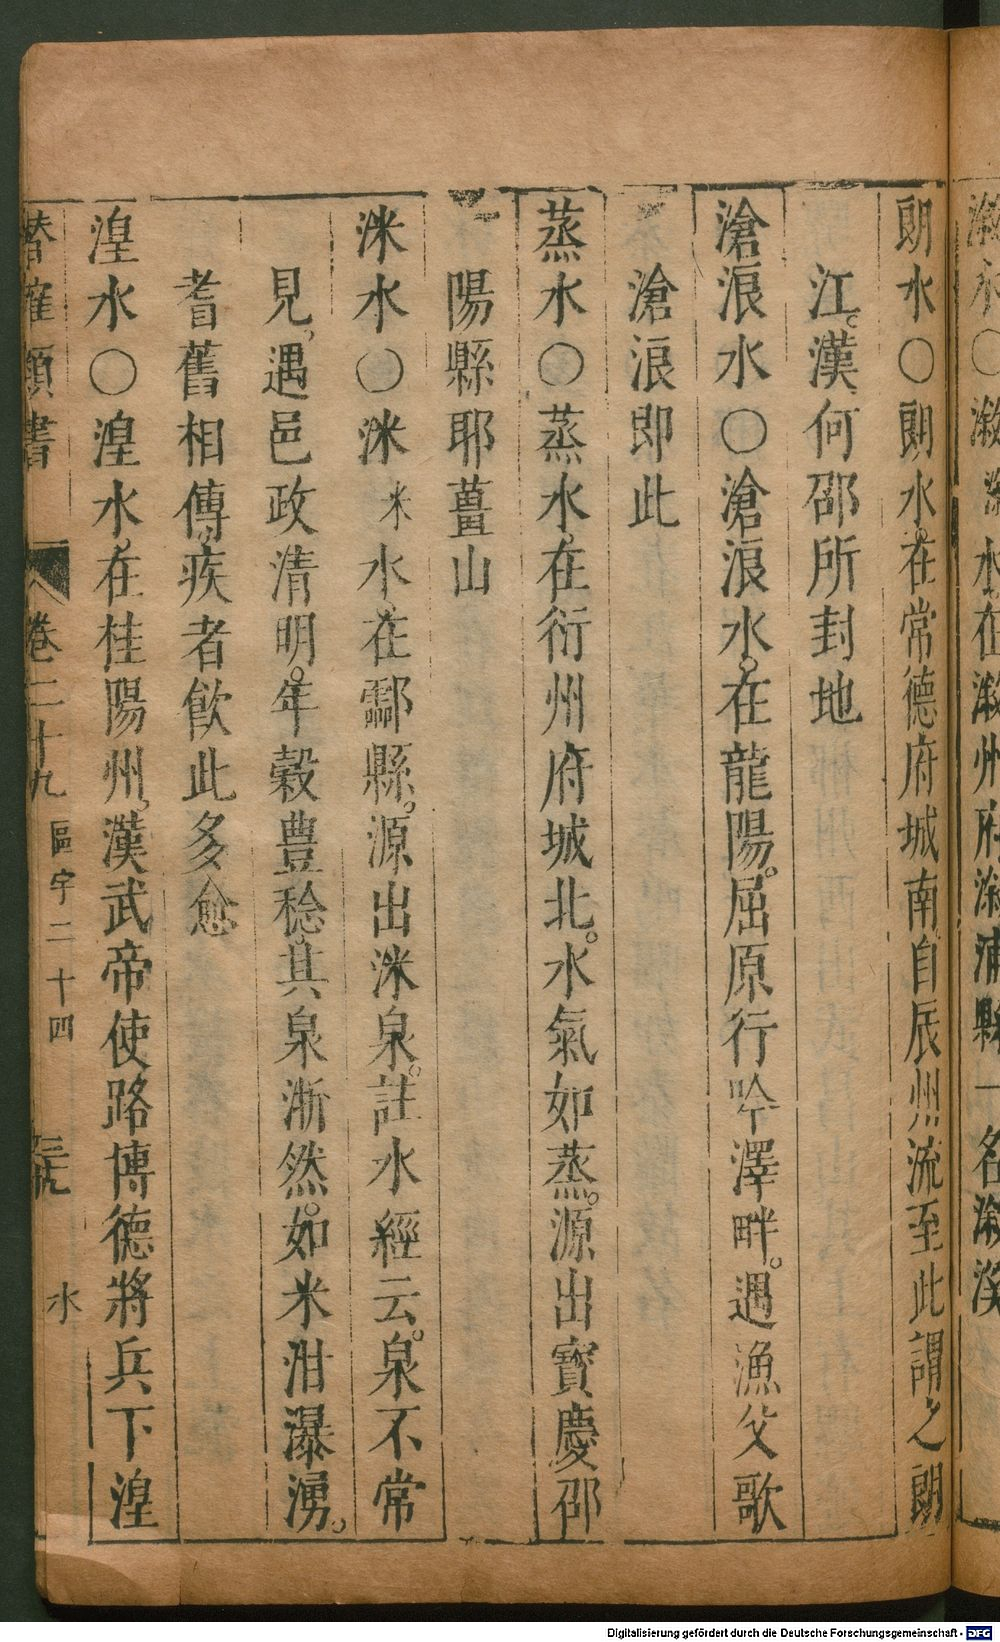 漵水○漵 水在漵州府漵浦縣一名漵溪
朗水○朗水在常德府城南自辰州流至此謂之朗
江漢何邵所封地
滄浪水○滄浪水在龍陽屈原行吟澤畔遇漁父歌
滄浪即此
蒸水○蒸水在衍州府城北水氣如蒸源出寶慶邵
陽縣耶薑山
洣水○洣米水在酃縣源出洣泉註水經云泉不常
見遇邑政清明年穀豊稔其泉漸然如米泔瀑湧
耆舊相傳疾者飲此多愈
湟水○湟水在桂陽州漢武帝使路博德將兵下湟
潛確類書 卷二十九 區宇二十四 水
Digitalisierung gefördert durch die Deutsche Forschungsgemeinschaft - DFG